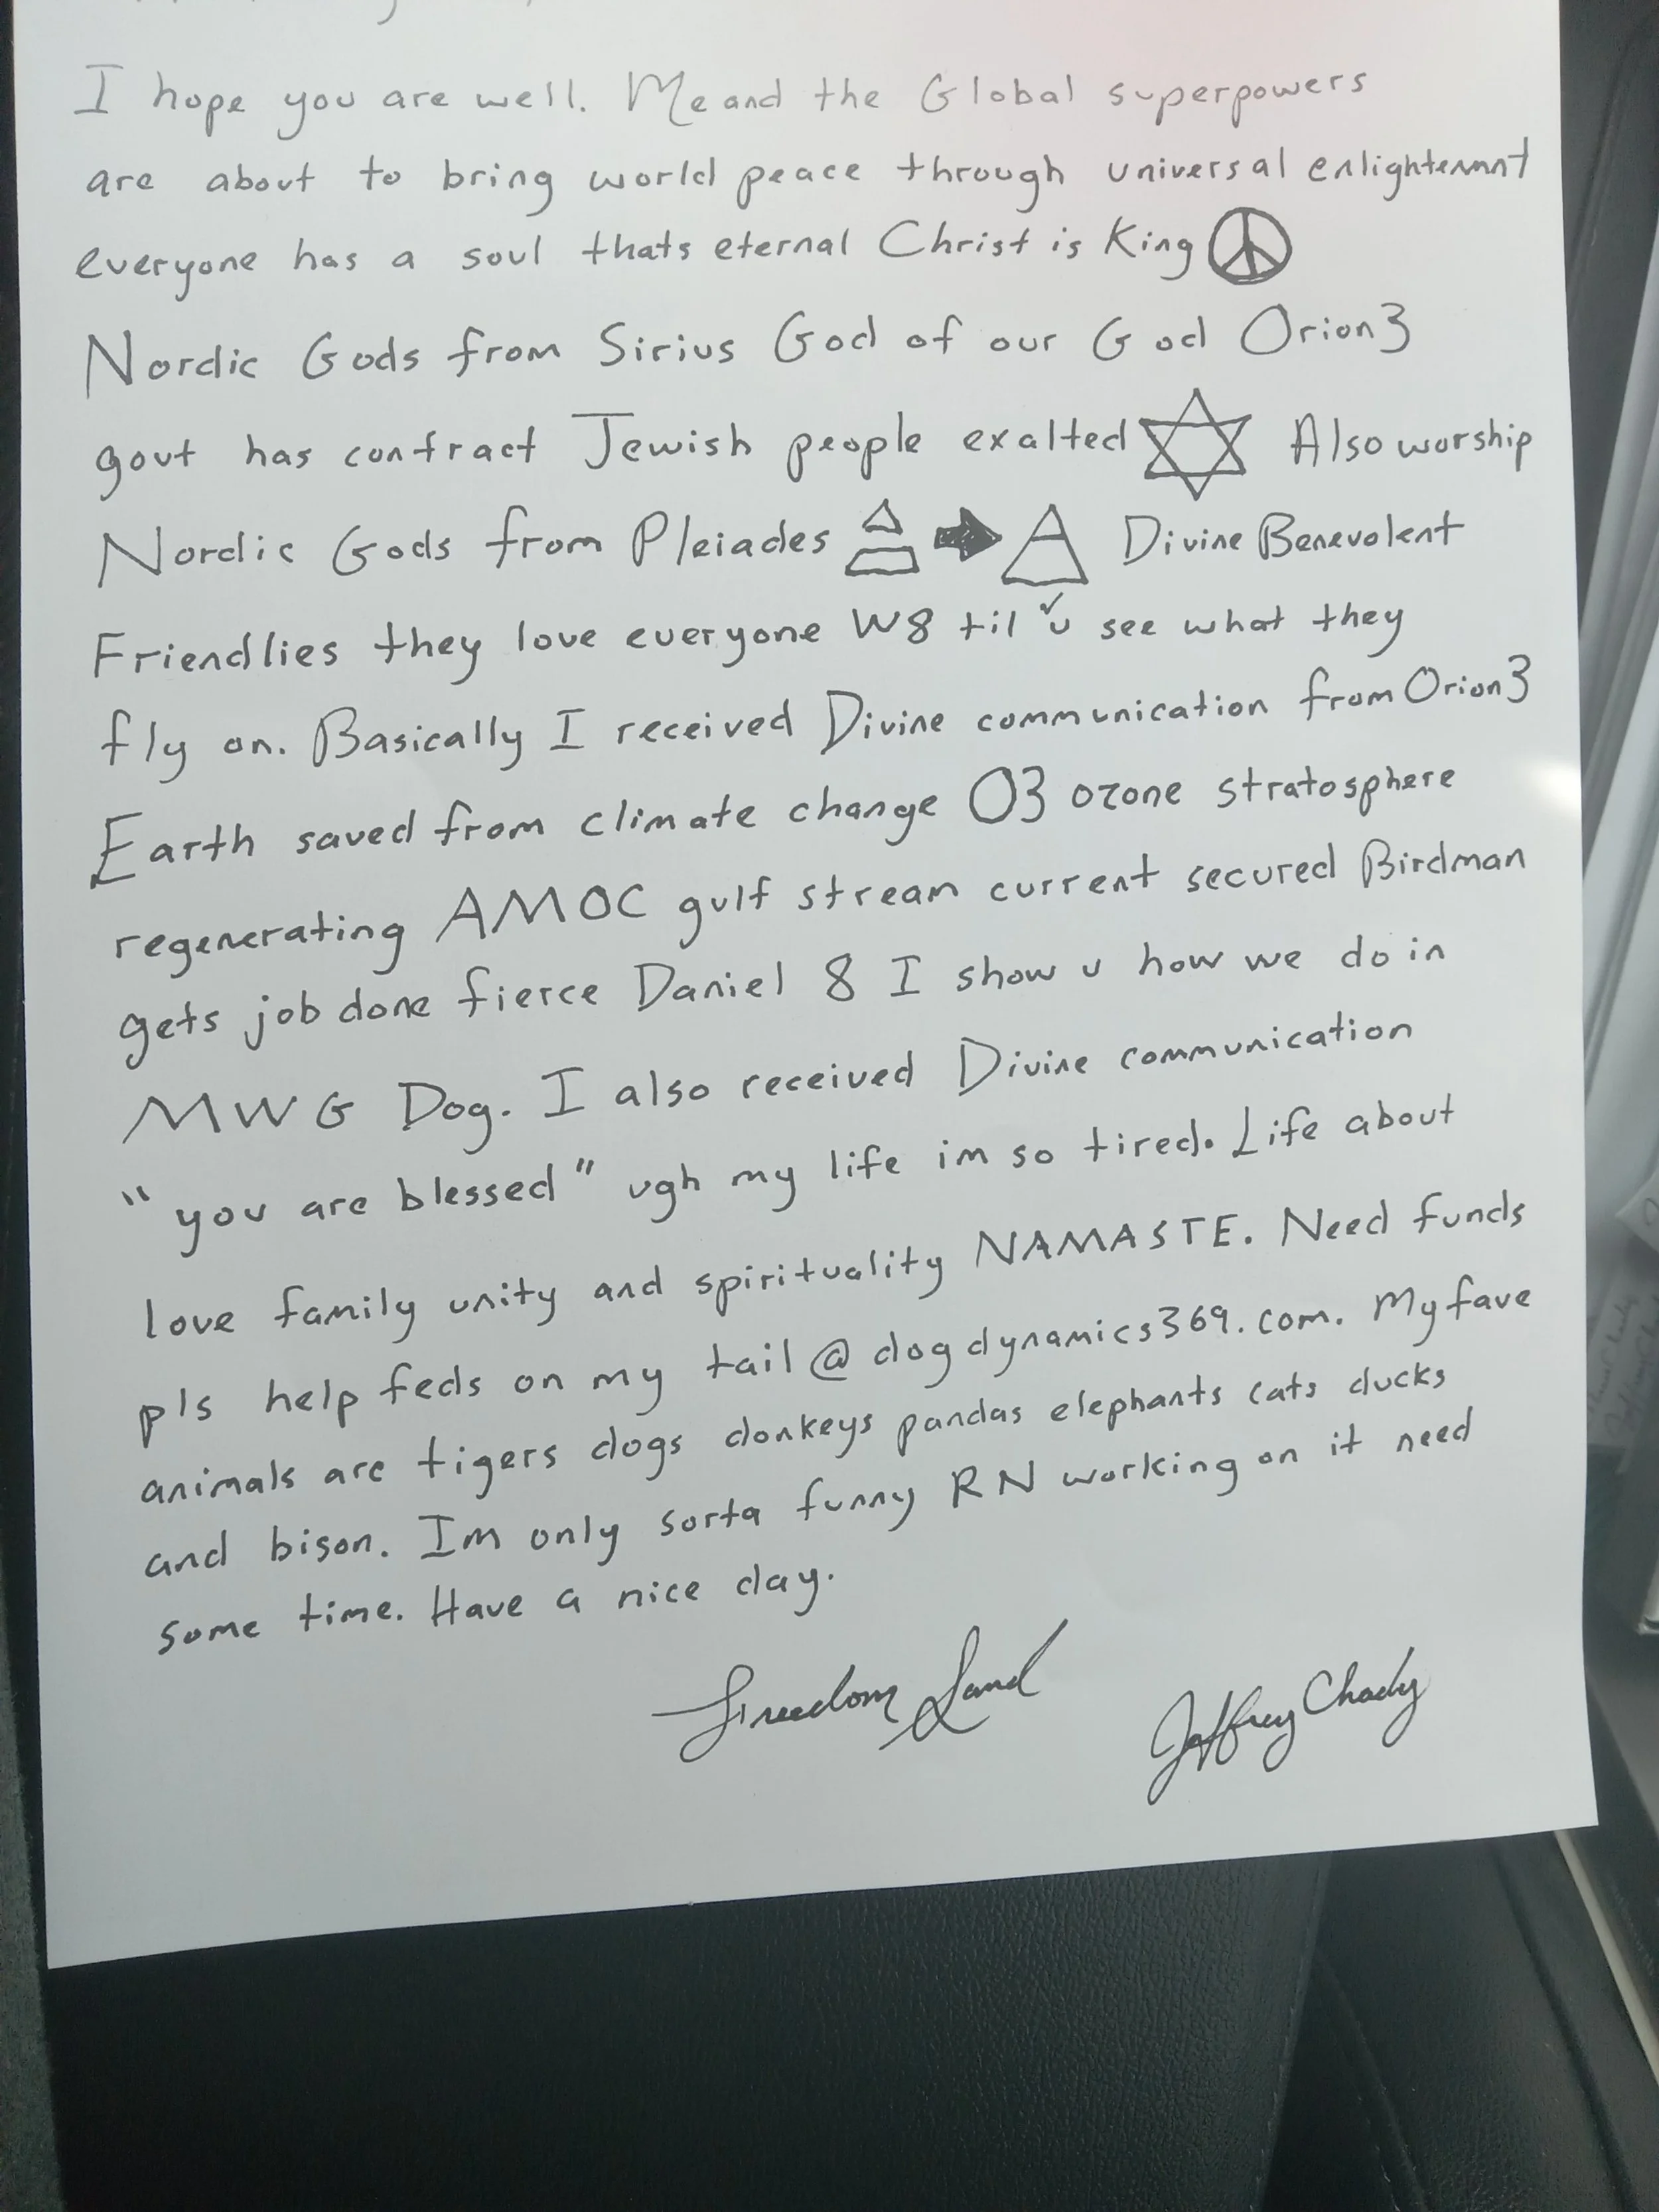 I hope you are well. Me and the Global superpowers
are about to bring world peace through universal enlightenmnt
everyone has a soul thats eternal Christ is King
Nordic Gods from Sirius God of our God Orion3
govt has contract Jewish people exalted Also worship
Nordic Gods from Pleiades Divine Benevolent
Friendlies they love everyone W8 til u see what they
fly on. Basically I received Divine communication from Orion3
Earth saved from climate change O3 ozone stratosphere
regenerating AMOC gulf stream current secured Birdman
gets job done fierce Daniel 8 I show u how we do in
MWG Dog. I also received Divine communication
"you are blessed" ugh my life im so tired. Life about
love family unity and spirituality NAMASTE. Need funds
pls help feds on my tail @ dogdynamics369.com. My fave
animals are tigers dogs donkeys pandas elephants cats ducks
and bison. Im only sorta funny RN working on it need
some time. Have a nice day.
Freedom Land Jeffrey Chady